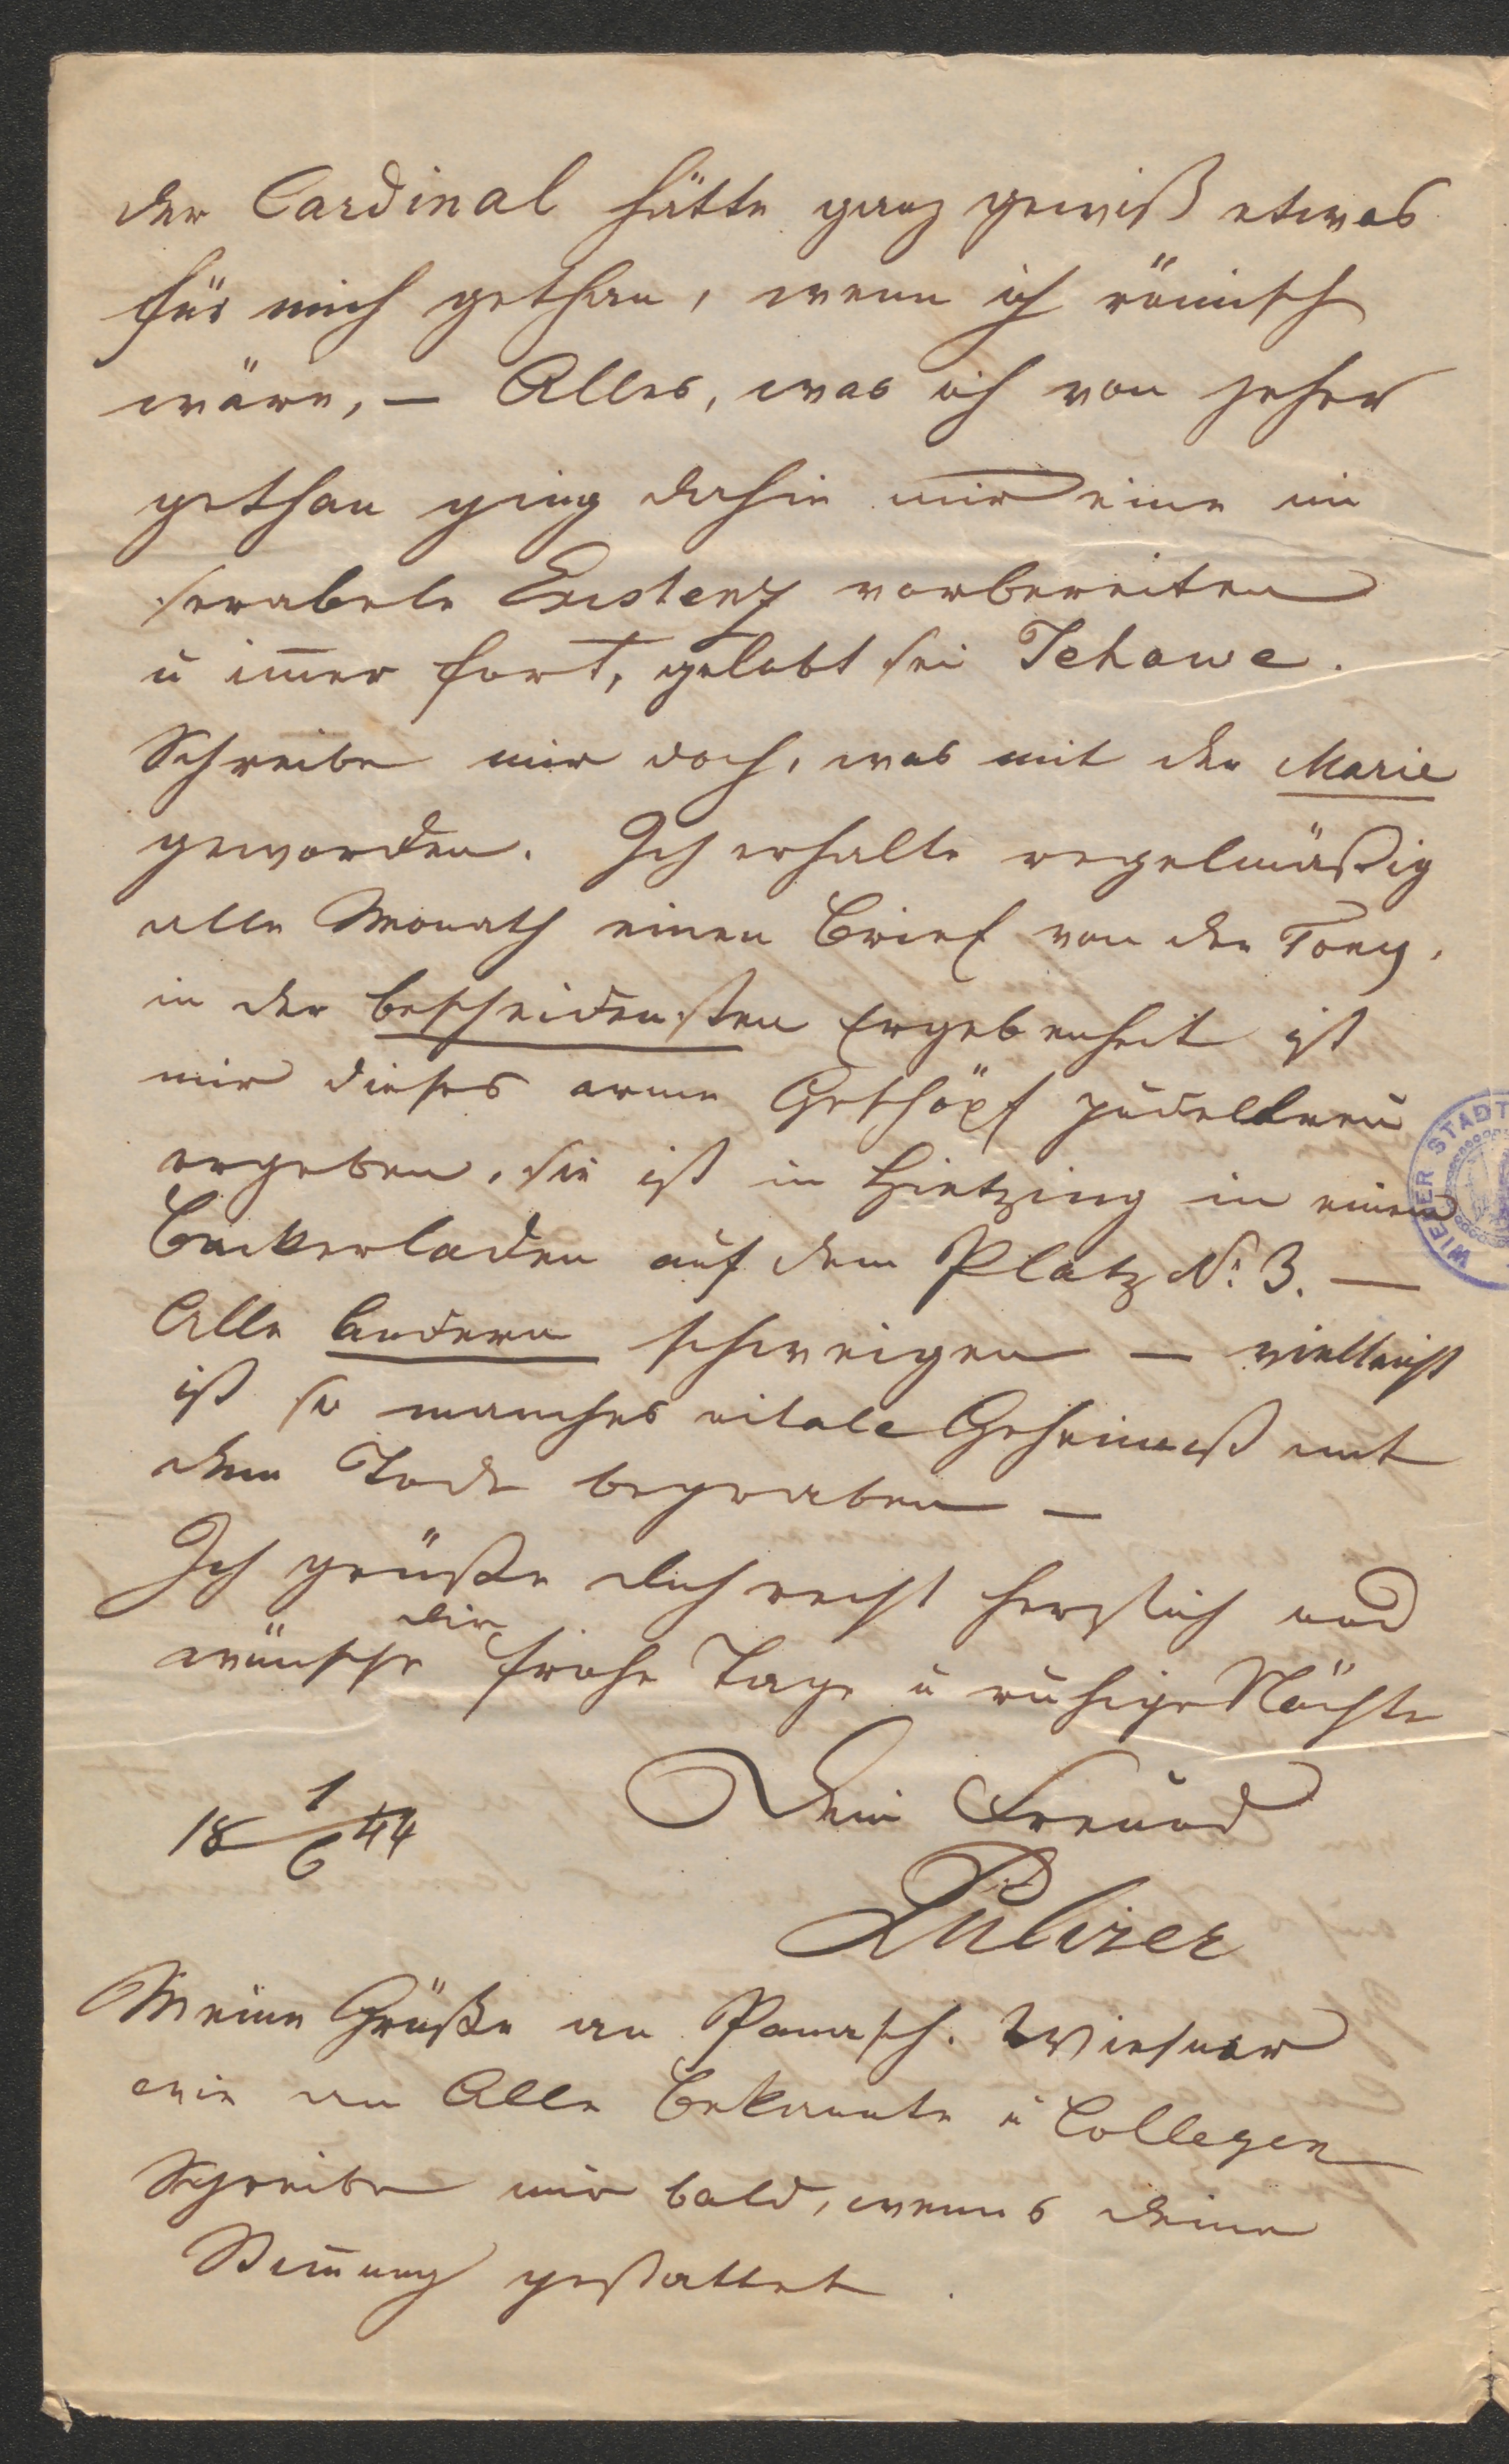 der Cardinal hätte ganz gewiß etwas
für mich gethan, wenn ich römisch
wäre, — Alles, was ich von jeher
gethan ging dahin mir eine mi
serabele Existenz vorbereiten
u im̄er fort, gelobt sei Jehowe.
Schreibe mir doch, was mit der Marie
geworden. Ich erhalte regelmäßig
alle Monath einen Brief von der Tony,
in der bescheidensten Ergebenheit ist
mir dieses arme Geschöpf pudeltreu
ergeben, sie ist in Hietzing in einem
Beckerladen auf dem Platz No. 3. —
Alle Andern schweigen — vielleicht
ist so manches vitale Geheimniß mit
dem Tode begraben —
Ich grüße dich recht herzlich und
wünsche dir frohe Tage u ruhige Nächte
18 1/6 44
Dein Freund
Meine Grüße an Panasch. Wiesner
wie an Alle Bekannte u Collegen
Schreibe mir bald, wenns deine
Stim̄ung gestattet.
WIENER STADT